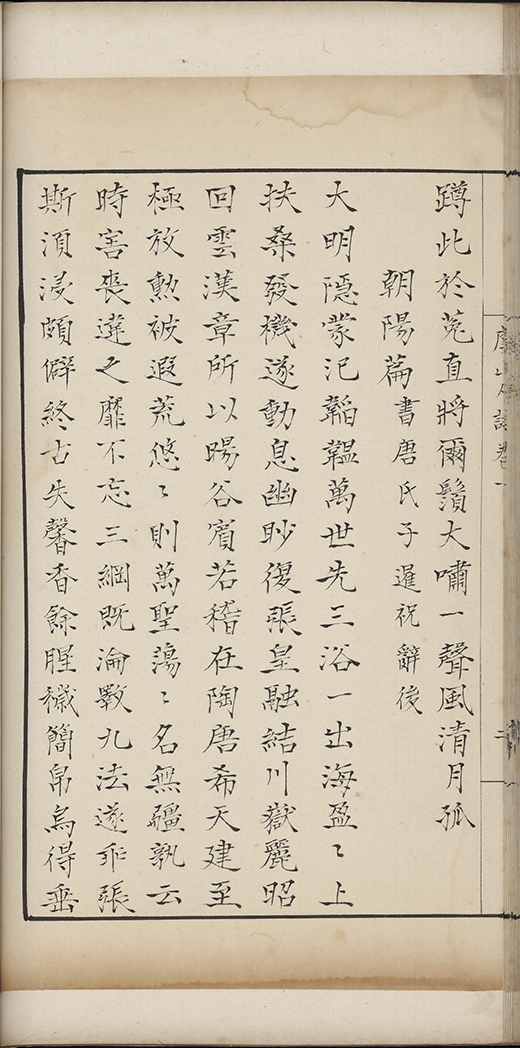 詩卷一
二
蹲此於菟直將爾鬚大嘯一聲風清月孤
朝陽篇書唐氏子暹祝辭後
大明隱蒙汜韜韞萬世先三浴一出海盈〻上
扶桑發機遂動息幽眇復張皇融結川嶽麗昭
回雲漢章所以暘谷賓若稽在陶唐希天建至
極放勲被遐荒悠〻則萬聖蕩〻名無疆孰云
時害喪違之靡不忘三綱既淪斁九法遂乖張
斯湏浸頗僻終古失馨香餘腥穢簡帛烏得垂